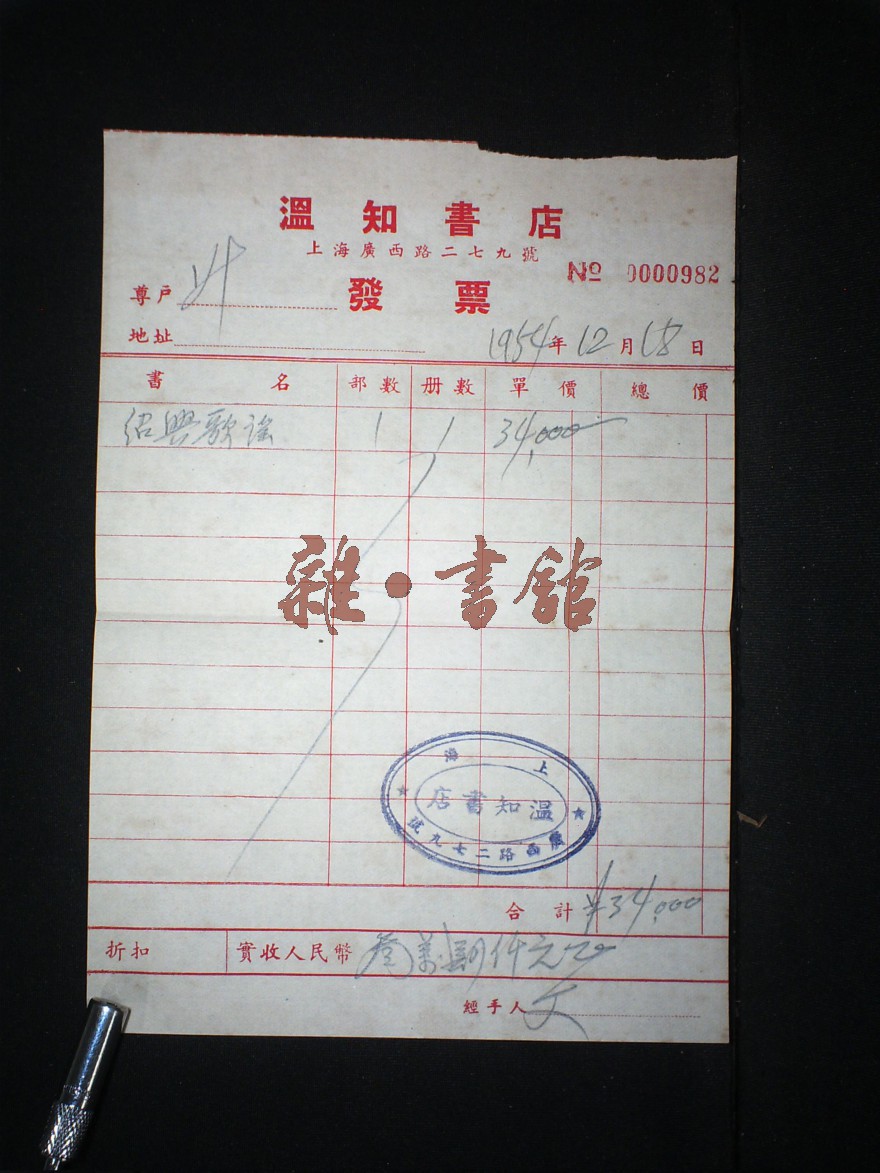 溫知書店
上海廣西路二七九號
No 0000982
發票
尊戶
地址
1954年12月18日
書名 部數 册數 單價 總價
紹興歌謠 1 1 34,000
雜·書館
上海
溫知書店
廣西路二七九號
合計 ¥34,000
折扣 實收人民幣 叁萬肆仟元正
經手人 文